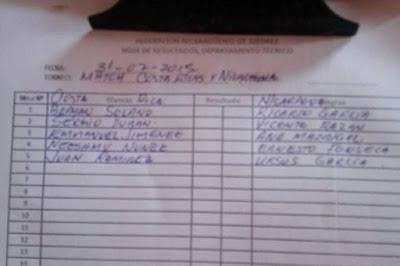 FEDERACION NICARAGUENSE DE AJEDREZ
HOJA DE RESULTADOS, DEPARTAMENTO TECNICO
FECHA: 31-07-2015
TORNEO: MATCH COSTA RICA Y NICARAGUA
Mesa Nº COSTA RICA Resultado NICARAGUA
1 BRYAN SOLANO RICARIO GARCIA
2 SERGIO DURAN VICENTE
3 EMMANUEL JIMENEZ
4 NUÑEZ ERNESTO FONSECA
5 JUAN RAMIREZ URSUS GARCIA
6
7
8
9
10
11
12
13
14